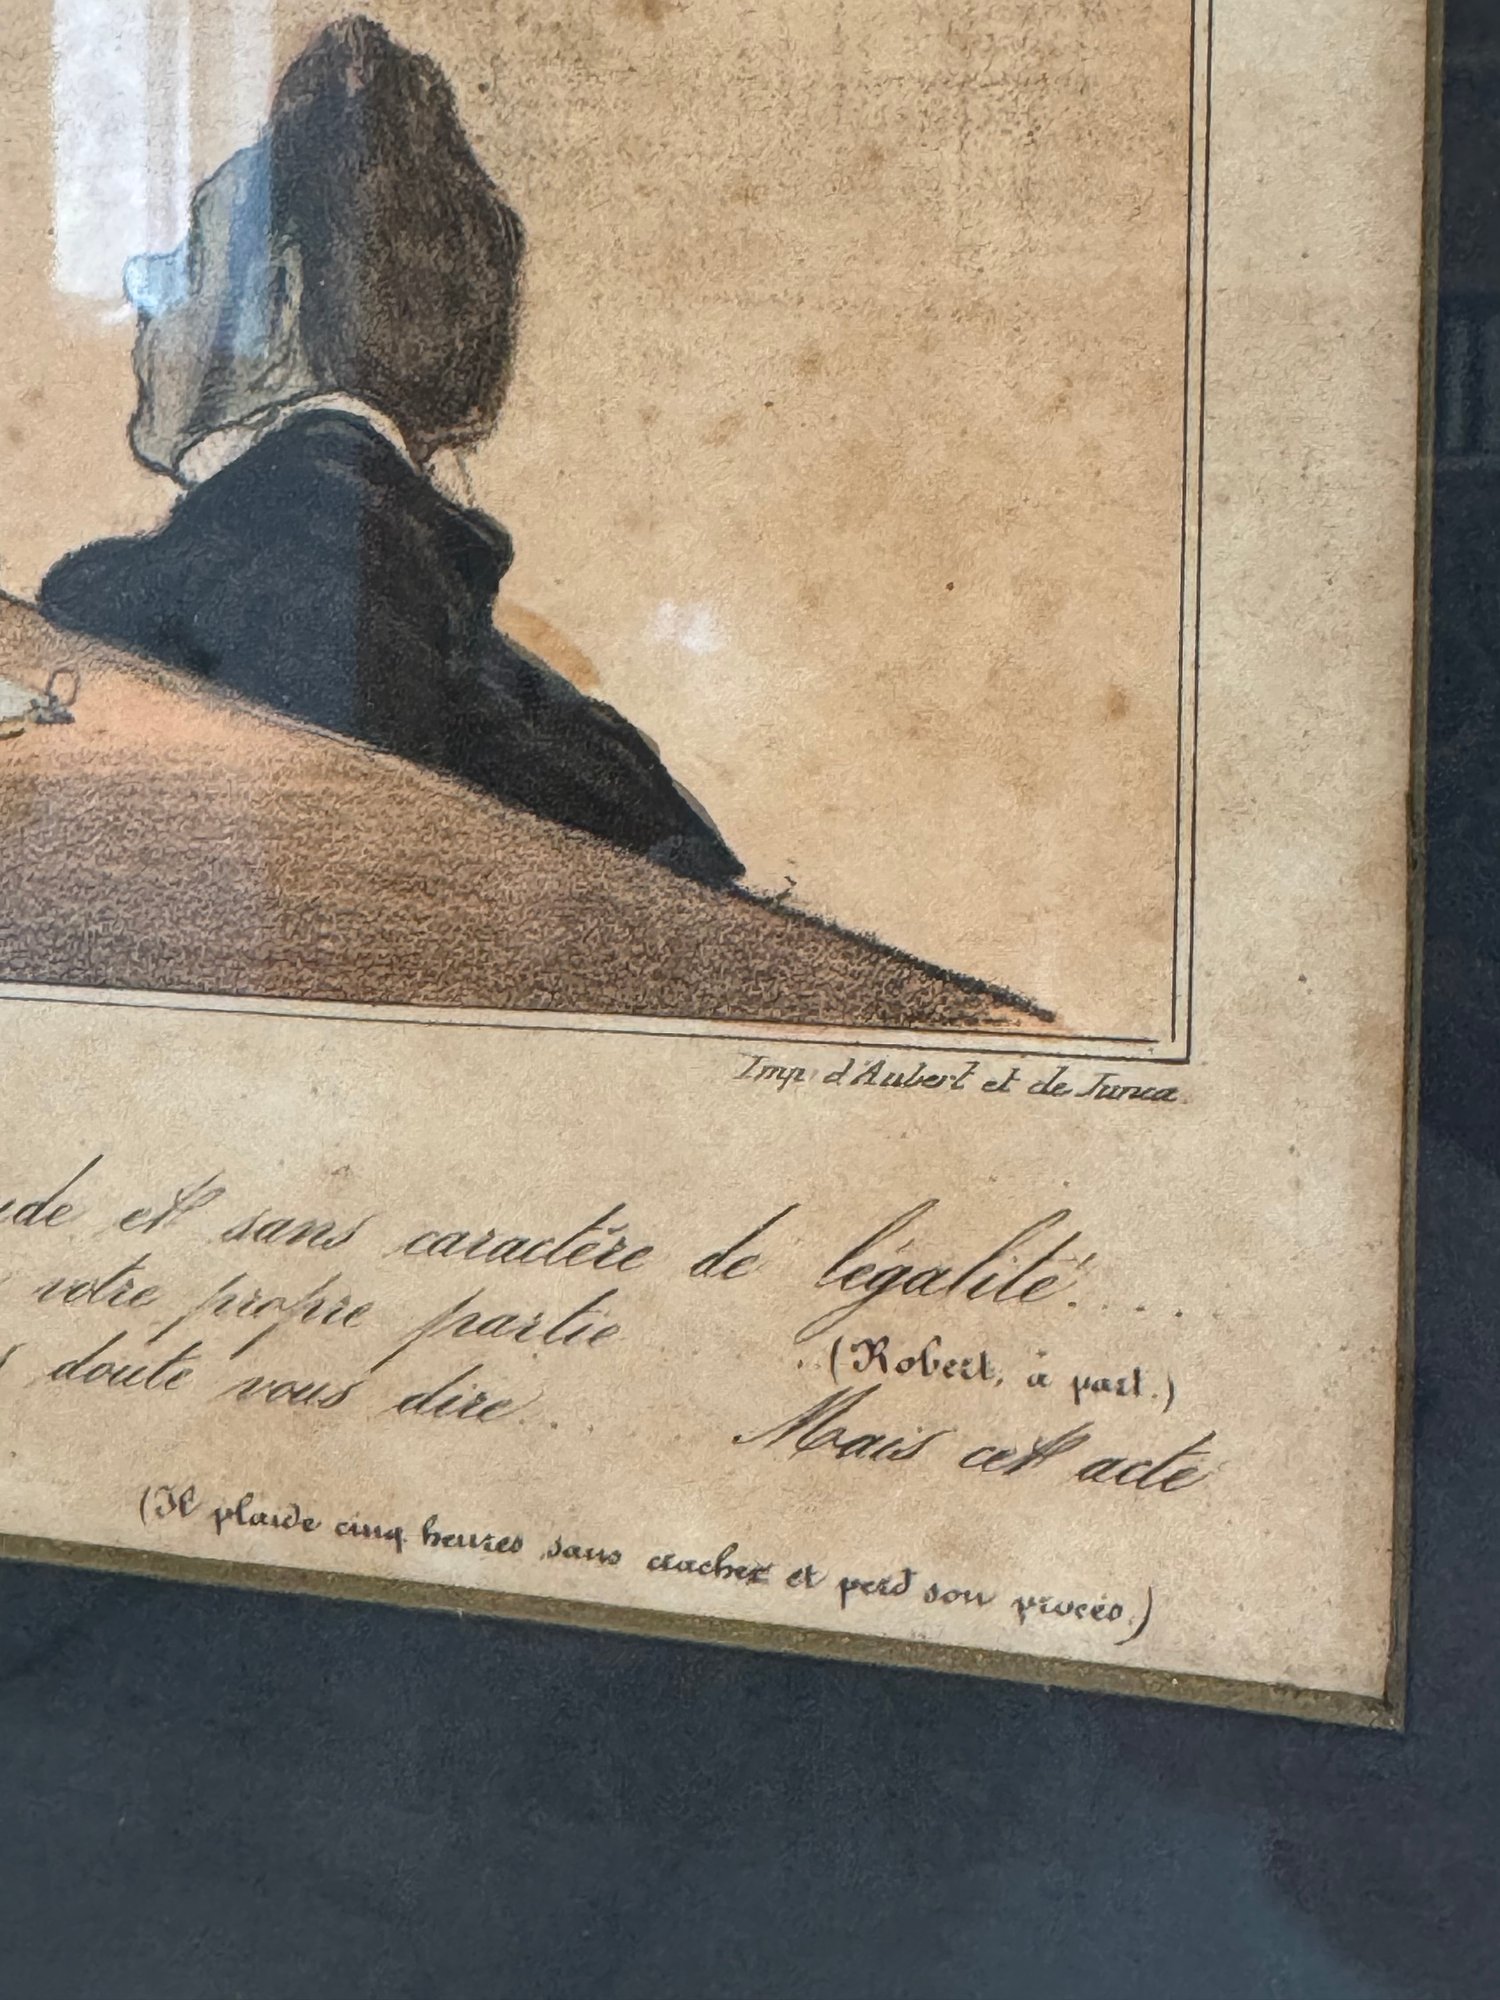 Imp. d'Aubert et de Junca
et sans caractère de légalité....
votre propre partie
..(Robert, à part.)
doute vous dire...
Mais cet acte
(Il plaide cinq heures sans cracher et perd son procès.)